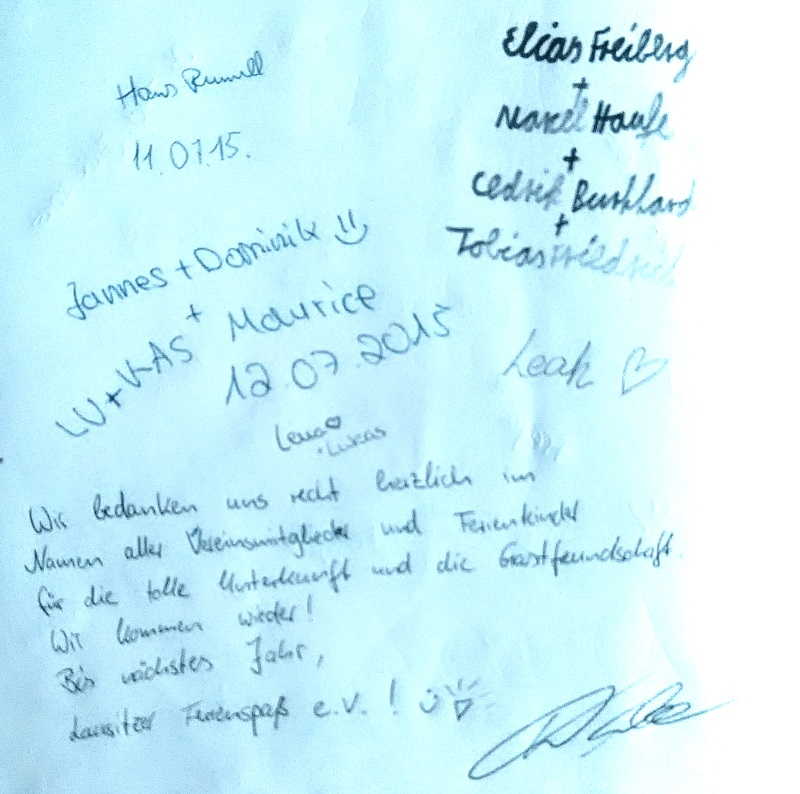 Hans
11.07.15.
Elias Freiberg
+
Marcel Haufe
+
Cedrik Burkhard
+
Tobias Friedrich
Jannes + Dominik
+ Maurice
LU+KAS
12.07.2015
Leah ♡
Lena♡
Lukas
Wir bedanken uns recht herzlich im
Namen aller Vereinsmitglieder und Ferienkinder
für die tolle Unterkunft und die Gastfreundschaft.
Wir kommen wieder!
Bis nächstes Jahr,
Lausitzer Ferienspaß e.V. !